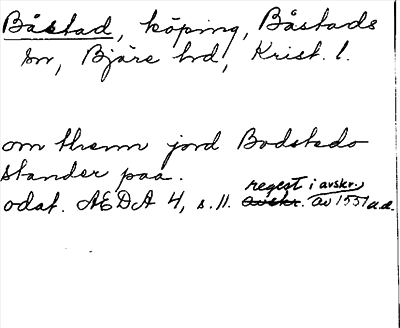 Båstad, köping, Båstads
sn, Bjäre hd, Krist. l.
om them jord Bodstedo
stander paa.
odat. AEDA 4, s. 11. avskr. regest i avskr. av 1551 a.a.